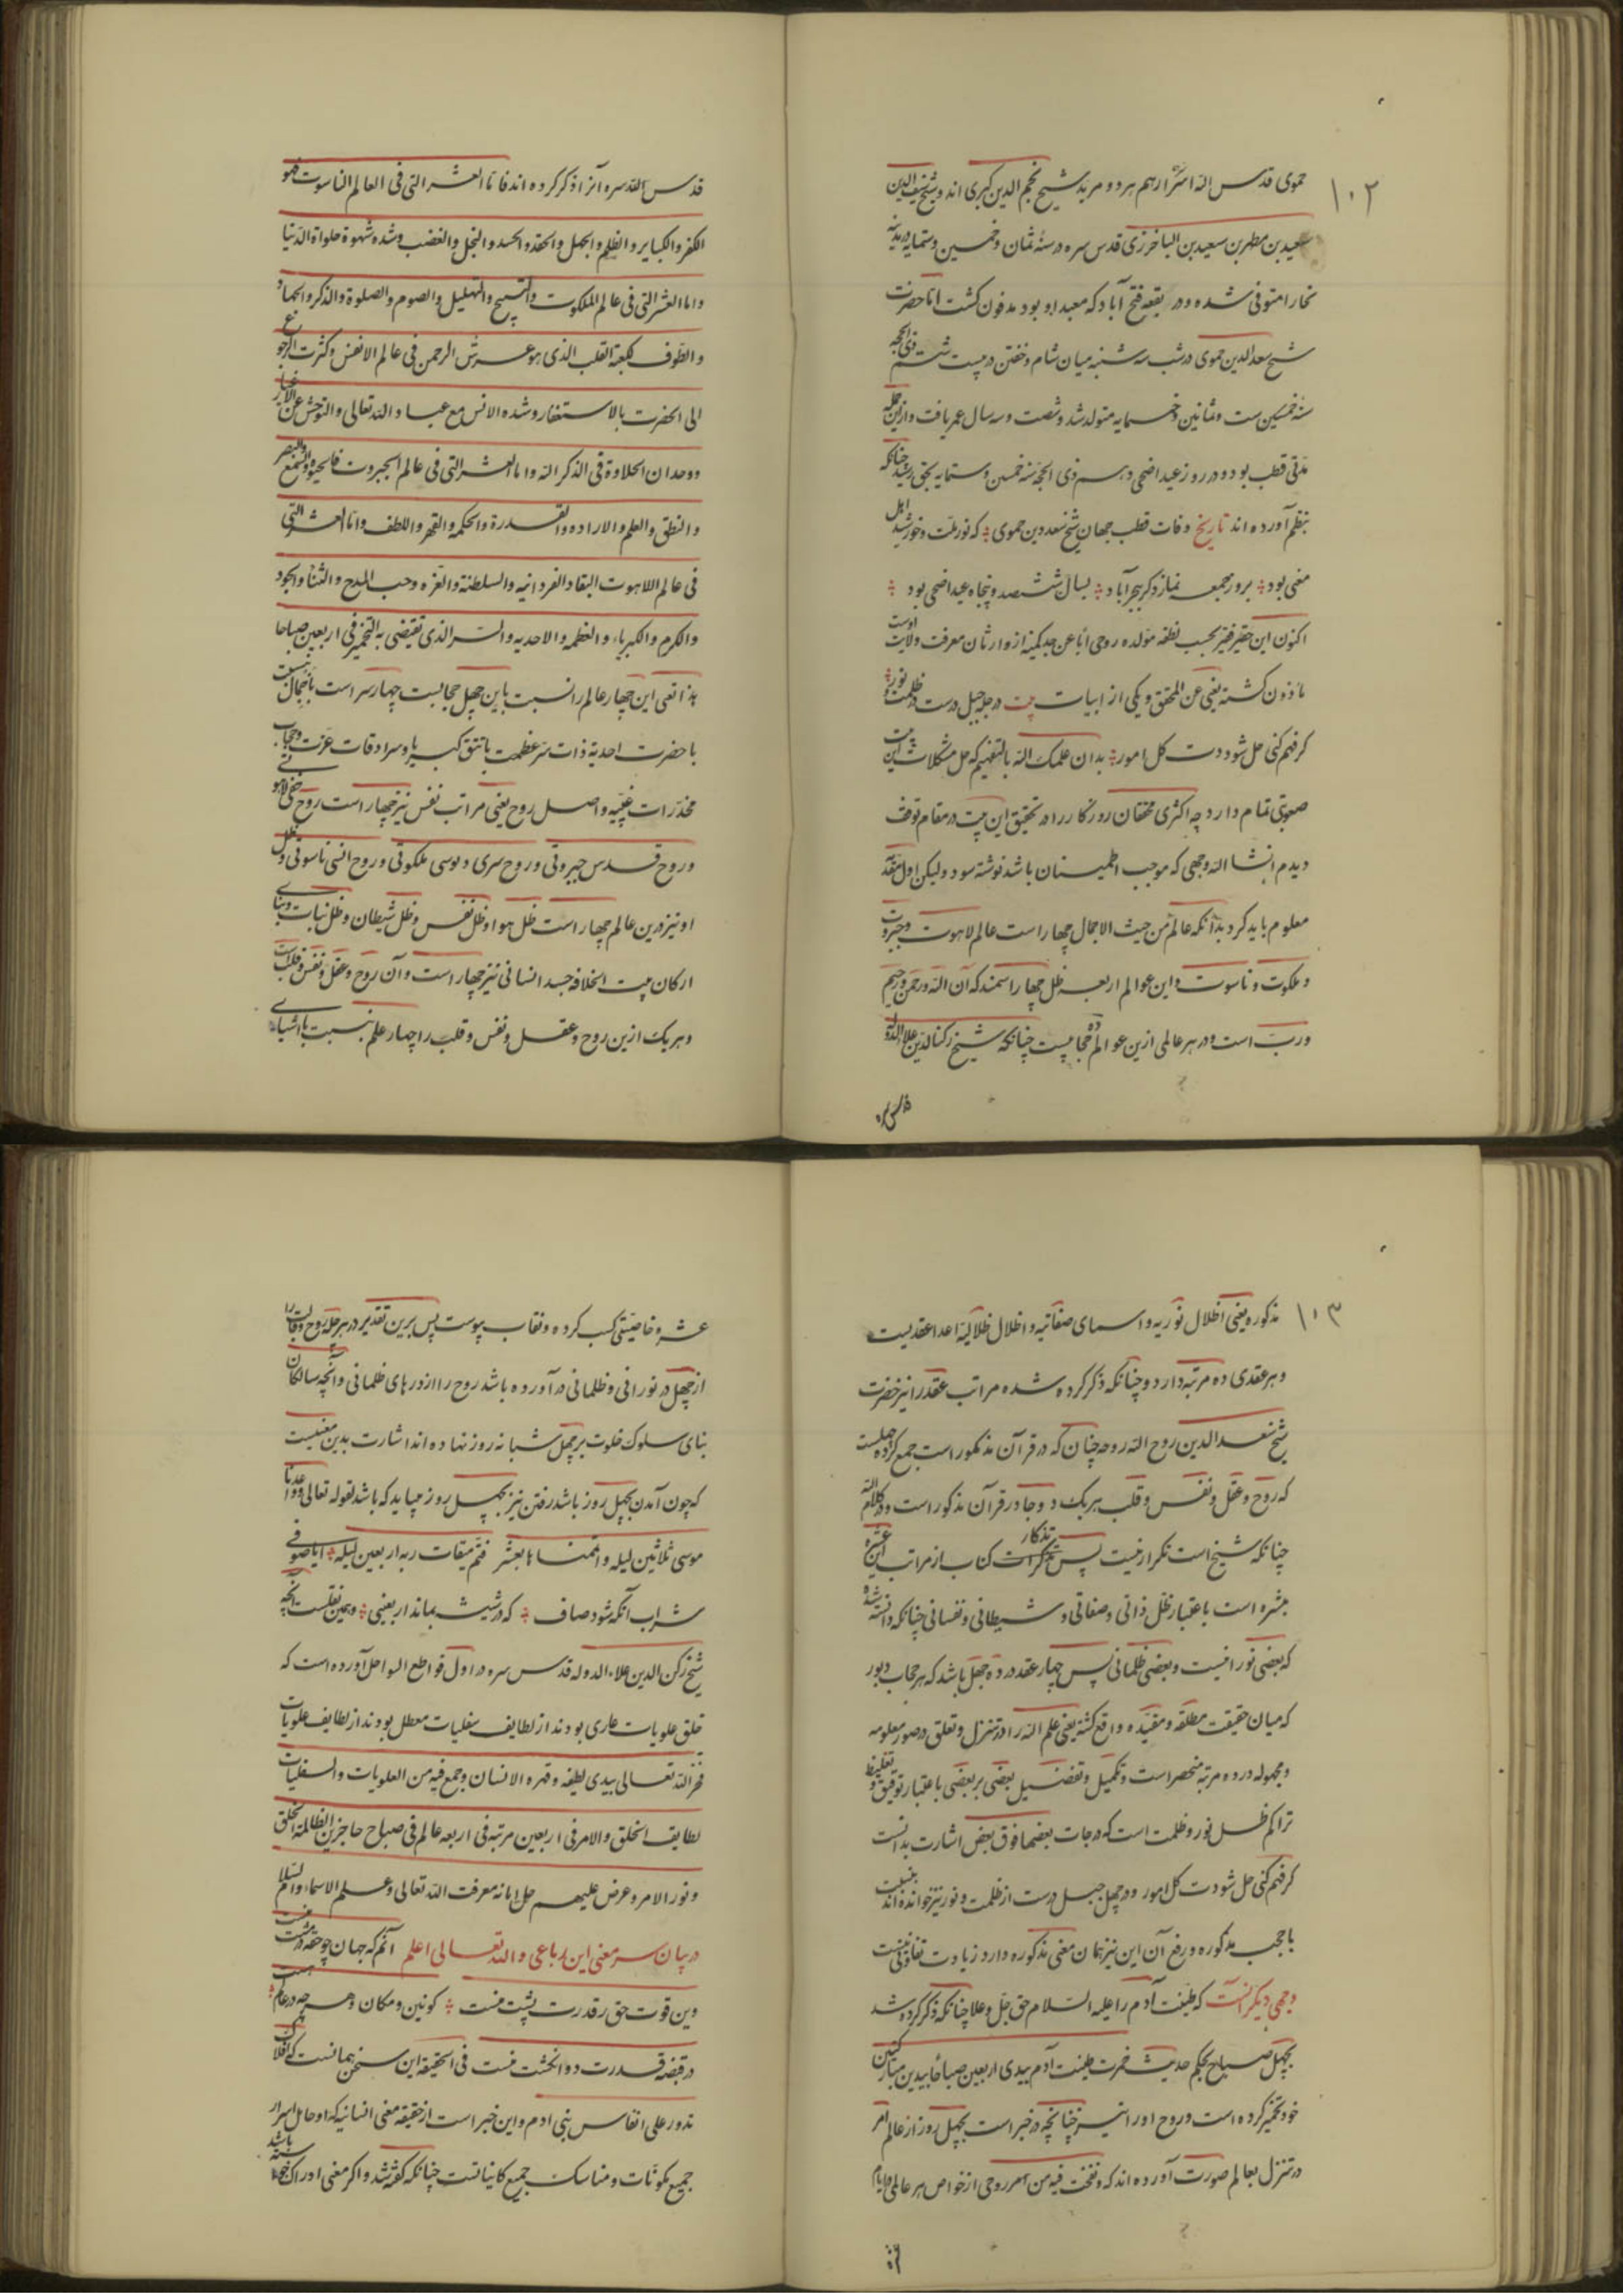 ۱۰۲
حموی قدس الله اسرارهم هر دو مرید شیخ نجم الدین کبری اند و شیخ سیف الدین
سعید بن مطهر بن سعید بن الباخرزی قدس سره در سنهٔ ثمان و خمسین و ستمایه در مدینه
بخارا متوفی شده و در بقعه فتح آباد که معبد او بود مدفون کشت اما حضرت
شیخ سعدالدین حموی در شب سه شنبه میان شام و خفتن در بیست شت ذی الحجه
سنه خمسین ست و ثمانین و خسمایه متولد شد و شصت و سه سال عمر یافت و ازین جمله
مدتی قطب بود و در روز عید اضحی دهم ذی الحجه سنه خمسین و ستمایه بحق رسید چنانکه
بنظم آورده اند تاریخ وفات قطب جهان شیخ سعد دین حموی که نور ملت و خورشید اهل
معنی بود بروز جمعه نماز دکر ببحرآباد بسال ششصد و پنجاه عید اضحی بود
اکنون این حقیر فقیر بحسب نطفه مولده روحی اباعن جد کمینه از وارثان معرفت ولایت اوست
ماذون کشته یغنی عن المحقق و یکی از ابیات بیت در جله چهل درست در ظلمت و نور
کر فهم کنی حل شودت کل امور بدان علمک الله بالتفهیم که حل مشکلات این بیت
صعوبتی تمام دارد چه اکثری محققان روزکار را در تحقیق این بیت در مقام توقف
دیدم انشا الله وجهی که موجب اطمینان باشد نوشته سود ولیکن اول مقدمه
معلوم باید کرد بدانکه عالم من حیث الاجمال چهار است عالم لاهوت و جبروت
و ملکوت و ناسوت و این عوالم اربعه ظل چهار اسمند که آن الله و رحمن و رحیم
و ربّ است و در هر عالمی ازین عوالم ده حجابیست چنانکه شیخ رکن الدین علاء الدوله
قدس سره
قدس الله سره آنرا ذکر کرده اند فاما العشر التی فی العالم الناسوت فهو
الکفر والکبایر والظلم والجهل والحقد والحسد والبخل والغضب وشده شهوة حلواة الدنیا
واما العشر التی فی عالم الملکوت والتسبیح والتهلیل والصوم والصلوة والذکر والجهاد
والطوف لکعبة القلب الذی هو عرش الرحمن فی عالم الانفس وکثرت الرجوع
الی الحضرت بالاستغفار وشده الانس مع عباد الله تعالی والتوحش عن الاغیار
ووجدان الحلاوة فی الذکر الله واما العشر التی فی عالم الجبروت فالحیوة والسمع والبصر
والنطق والعلم والاراده والقدرة والحکمه والقهر واللطف واما العشر التی
فی عالم اللاهوت البقاء الفردانیه والسلطنة والعزه وحب المدح والثناء والجود
والکرم والکبریاء والعظمه والاحدیه والسر الذی تقتضی به التخمیر فی اربعین صباحا
بذا تعی این چهار عالم را نسبت باین چهل حجابست چهار سر است باجمال نسبت
با حضرت احدیة ذات سر عظمت باتتق کبریا و سرادقات عزت و حجاب
مخدرات غیبیه و اصل روح یعنی مراتب نفس نیز چهار است روح خفی لاهوتی
و روح قدس جبروتی و روح سری و بوسی ملکوتی و روح انسی ناسوتی و ظل
او نیز درین عالم چهار است ظل هوا و ظل نفس و ظل شیطان و ظل نبات
ارکان بیت الخلافه جسد انسانی نیز چهار است و آن روح و عقل و نفس و قلب است
و هر یک ازین روح و عقل و نفس و قلب را چهار علم نسبت با اشیای
۱۰۳
مذکوره یعنی اظلال نوریه و اسمای صفاتیه و اظلال ظلالیة اعدا عقدیست
و هر عقدی ده مرتبه دارد و چنانکه ذکر کرده شده مراتب عقد را نیز حضرت
شیخ سعد الدین روح الله روحه چنان که در قرآن مذکور است جمع کرده
که روح و عقل و نفس و قلب هر یک د وجا در قرآن مذکور است و در کلام الله
چنانکه شیخ است تکرار نیست پس تذکار کتاب از مراتب این عشره
بشره است باعتبار ظل ذاتی و صفاتی و شیطانی و نفسانی چنانکه دانسته شد
که بعضی نورانیست و بعضی ظلمانی پس چهار عقد در ده چهل باشد که هر حجاب دیور
که میان حقیقت مطلقه و مقیده واقع کشته یعنی علم الله را در تنزل و تعلق در صور معلومه
و مجهوله در ده مرتبه منحصر است و تکمیل و تفضیل بعضی بر بعضی باعتبار توفیق و تغلیظ
تراکم ظل نور و ظلمت است که درجات بعضها فوق بعض اشارت بدانست
کر فهم کنی حل شودت کل امور و در چهل جبل درست از ظلمت و نور نیز خوانده اند نسبت
باحجب مذکوره و رفع آن این نیز همان معنی مذکوره دارد زیادت تفاوتی نیست
وجهی دیکر آنست که طینت آدم را علیه السلام حق جل و علا چنانکه ذکر کرده شد
بچهل صباح بحکم حدیث خمرت طینت آدم بیدی اربعین صباحا بیدین مبارکتین
خود تخمیر کرده است و روح او را نیز چنانچه در خبر است بچهل روز از عالم امر
در تنزل بعالم صورت آورده اند که و نفخت فیه من امر روحی از خواص هر عالمی و ایام
عشره
عشره خاصیتی کسب کرده و نقاب پیوست پس برین تقدیر در هر جله روح وقالب را
از چهل در نورانی و ظلمانی درآورده باشد روح را از درهای ظلمانی و آنچه سالکان
بنای سلوک خلوت بر چهل شبانه روز نهاده اند اشارت بدین معنیست
که چون آمدن بچهل روز باشد رفتن نیز بچهل روز میباید که باشد لقوله تعالی وواعدنا
موسی ثلاثین لیله واتممناها بعشر فتم میقات ربه اربعین لیله ایا صوفی
شراب آنکه شود صاف که در شیشه بماند اربعینی و همین نقلست آنچه
شیخ رکن الدین علاء الدوله قدس سره در اول قواطع السواحل آورده است که
خلق علویات عاری بودند از لطایف سفلیات معطل بودند از لطایف علویات
فخر الله تعالی بیدی لطیفه وقهره الانسان وجمع فیه من العلویات والسفلیات
لطایف الخلق والامر فی اربعین مرتبه فی اربعه عالم فی صباح حاجزین الظالمة الخلق
ونور الامر وعرض علیهم حمل امانه معرفت الله تعالی وعلم الاسماء والسلام
در بیان سر معنی این رباعی والله تعالی اعلم آنم که جهان چو حقه در مشت منست
وین قوت حق ز قدرت پشت منست کونین و مکان و هر چه در عالم هست
در قبضه قدرت دو انکشت منست فی الحقیقه این سخن همانست که افلاک
تدور علی انفاس بنی ادم واین خبر است از حقیقه معنی انسانیه که او حامل اسرار
جمیع مکونات و مناسک جمیع کایناتست چنانکه کفته شد و اکر معنی ادراک